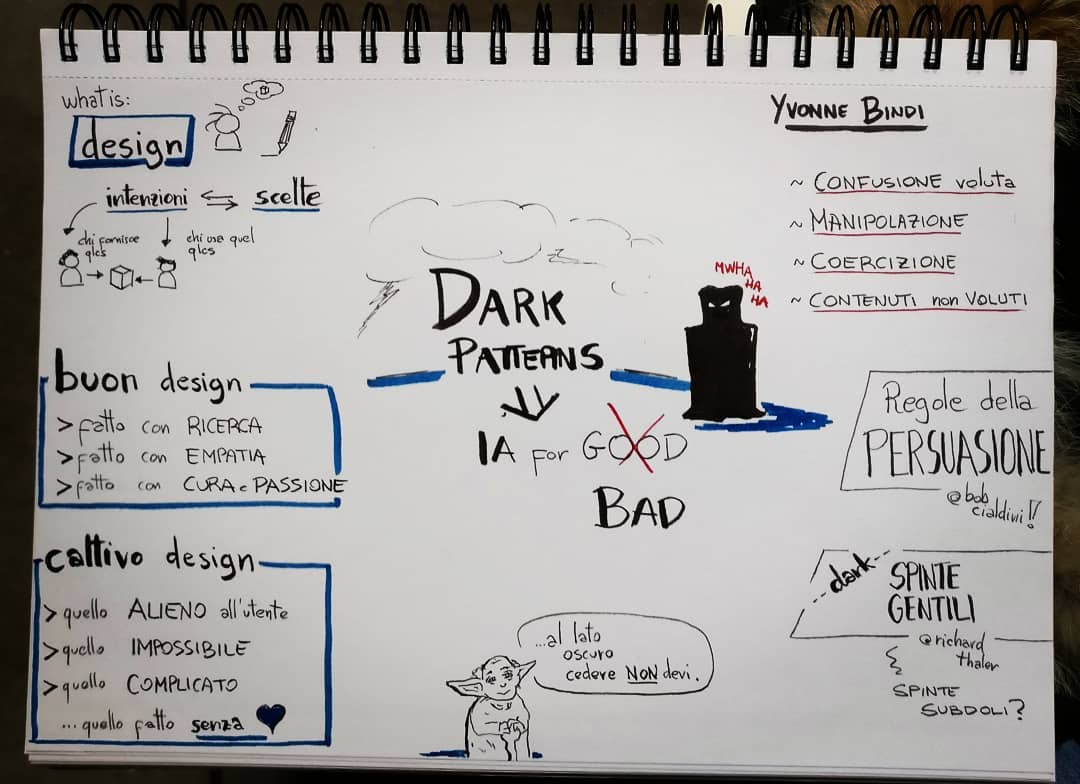 what is:
design
intenzioni ⇋ scelte
chi fornisce
qlcs
chi usa quel
qlcs
buon design
> fatto con RICERCA
> fatto con EMPATIA
> fatto con CURA e PASSIONE
cattivo design
> quello ALIENO all'utente
> quello IMPOSSIBILE
> quello COMPLICATO
... quello fatto senza
DARK
PATTERNS
IA for GOOD
BAD
MWHA
HA
HA
...al lato
oscuro
cedere NON devi.
YVONNE BINDI
~ CONFUSIONE voluta
~ MANIPOLAZIONE
~ COERCIZIONE
~ CONTENUTI non VOLUTI
Regole della
PERSUASIONE
@bob
cialdini!!
dark
SPINTE
GENTILI
@richard
thaler
SPINTE
SUBDOLI?